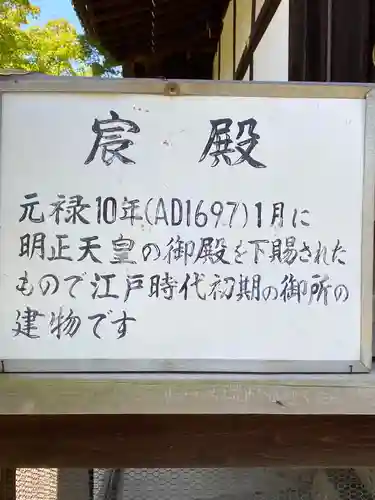 宸殿
元禄10年(AD1697)1月に
明正天皇の御殿を下賜された
もので江戸時代初期の御所の
建物です